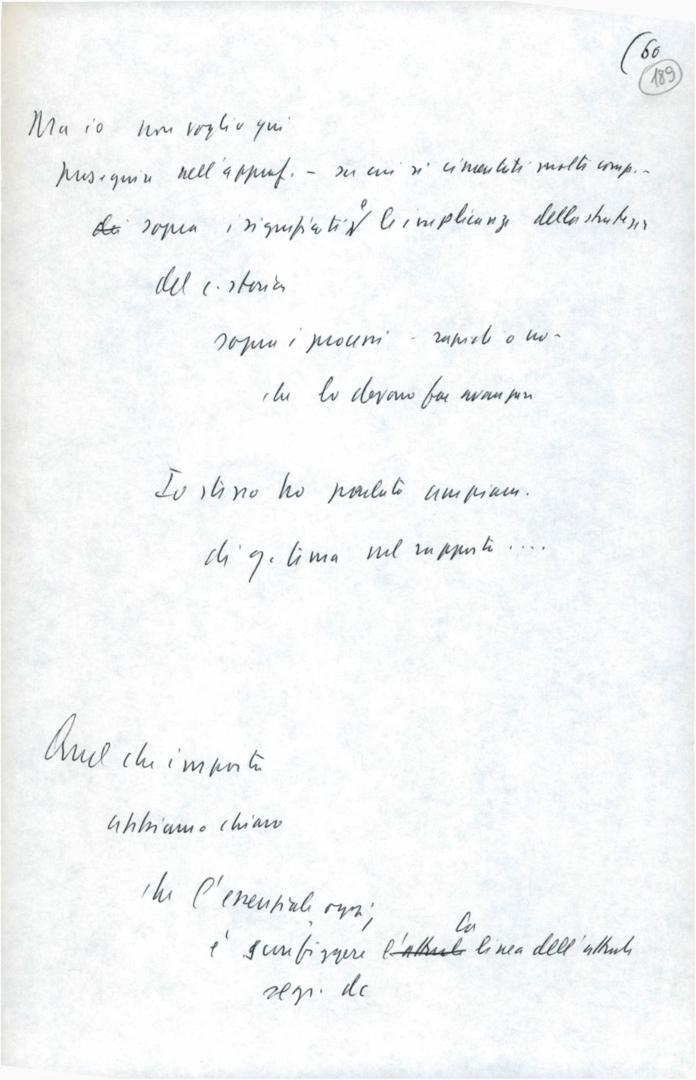 (60
189
Ma io non voglio qui
proseguire nell'approf. - su cui si cimentati molti comp. -
sopra i significati e le implicanze della strategia
del c. storico
sopra i processi - rapidi o no -
che lo devono far avanzare
Io stesso ho parlato ampiam.
di q. tema nel rapporto ....
Quel che importa
abbiamo chiaro
che l'essenziale, oggi,
è sconfiggere l'attuale la linea dell'attuale
segr. dc